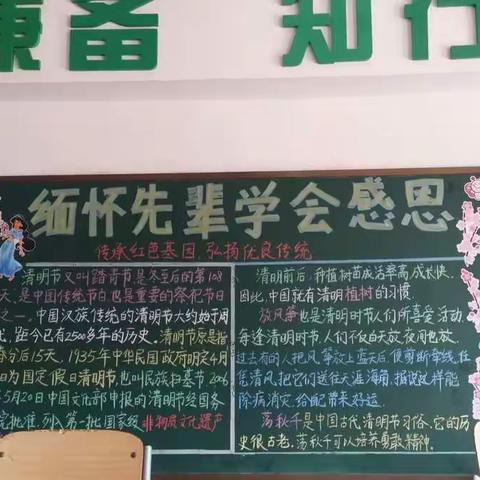 兼备 知行
缅怀先辈学会感恩
传承红色基因,弘扬优良传统
清明节又叫踏青节,是冬至后的第108
天,是中国传统节日,也是重要的祭祀节日
之一,中国汉族传统的清明节大约始于周
代,距今已有2500多年的历史。清明节原是指
春分后15天,1935年中华民国政府明定4月
日为国定假日清明节,也叫民族扫墓节2006
年5月20日中国文化部申报的清明节经国务
院批准,列入第一批国家级非物质文化遗产
清明前后,种植树苗成活率高,成长快.
因此,中国就有清明植树的习惯.
放风筝也是清明时节人们所喜爱活动
每逢清明时节,人们不仅白天放,夜间也放.
过去有的人把风筝放上蓝天后,便剪断牵线,任
凭清风,把它们送往天涯海角,据说这样能
除病消灾,给自己带来好运.
荡秋千是中国古代清明节习俗,它的历
史很古老.荡秋千可以培养勇敢精神.